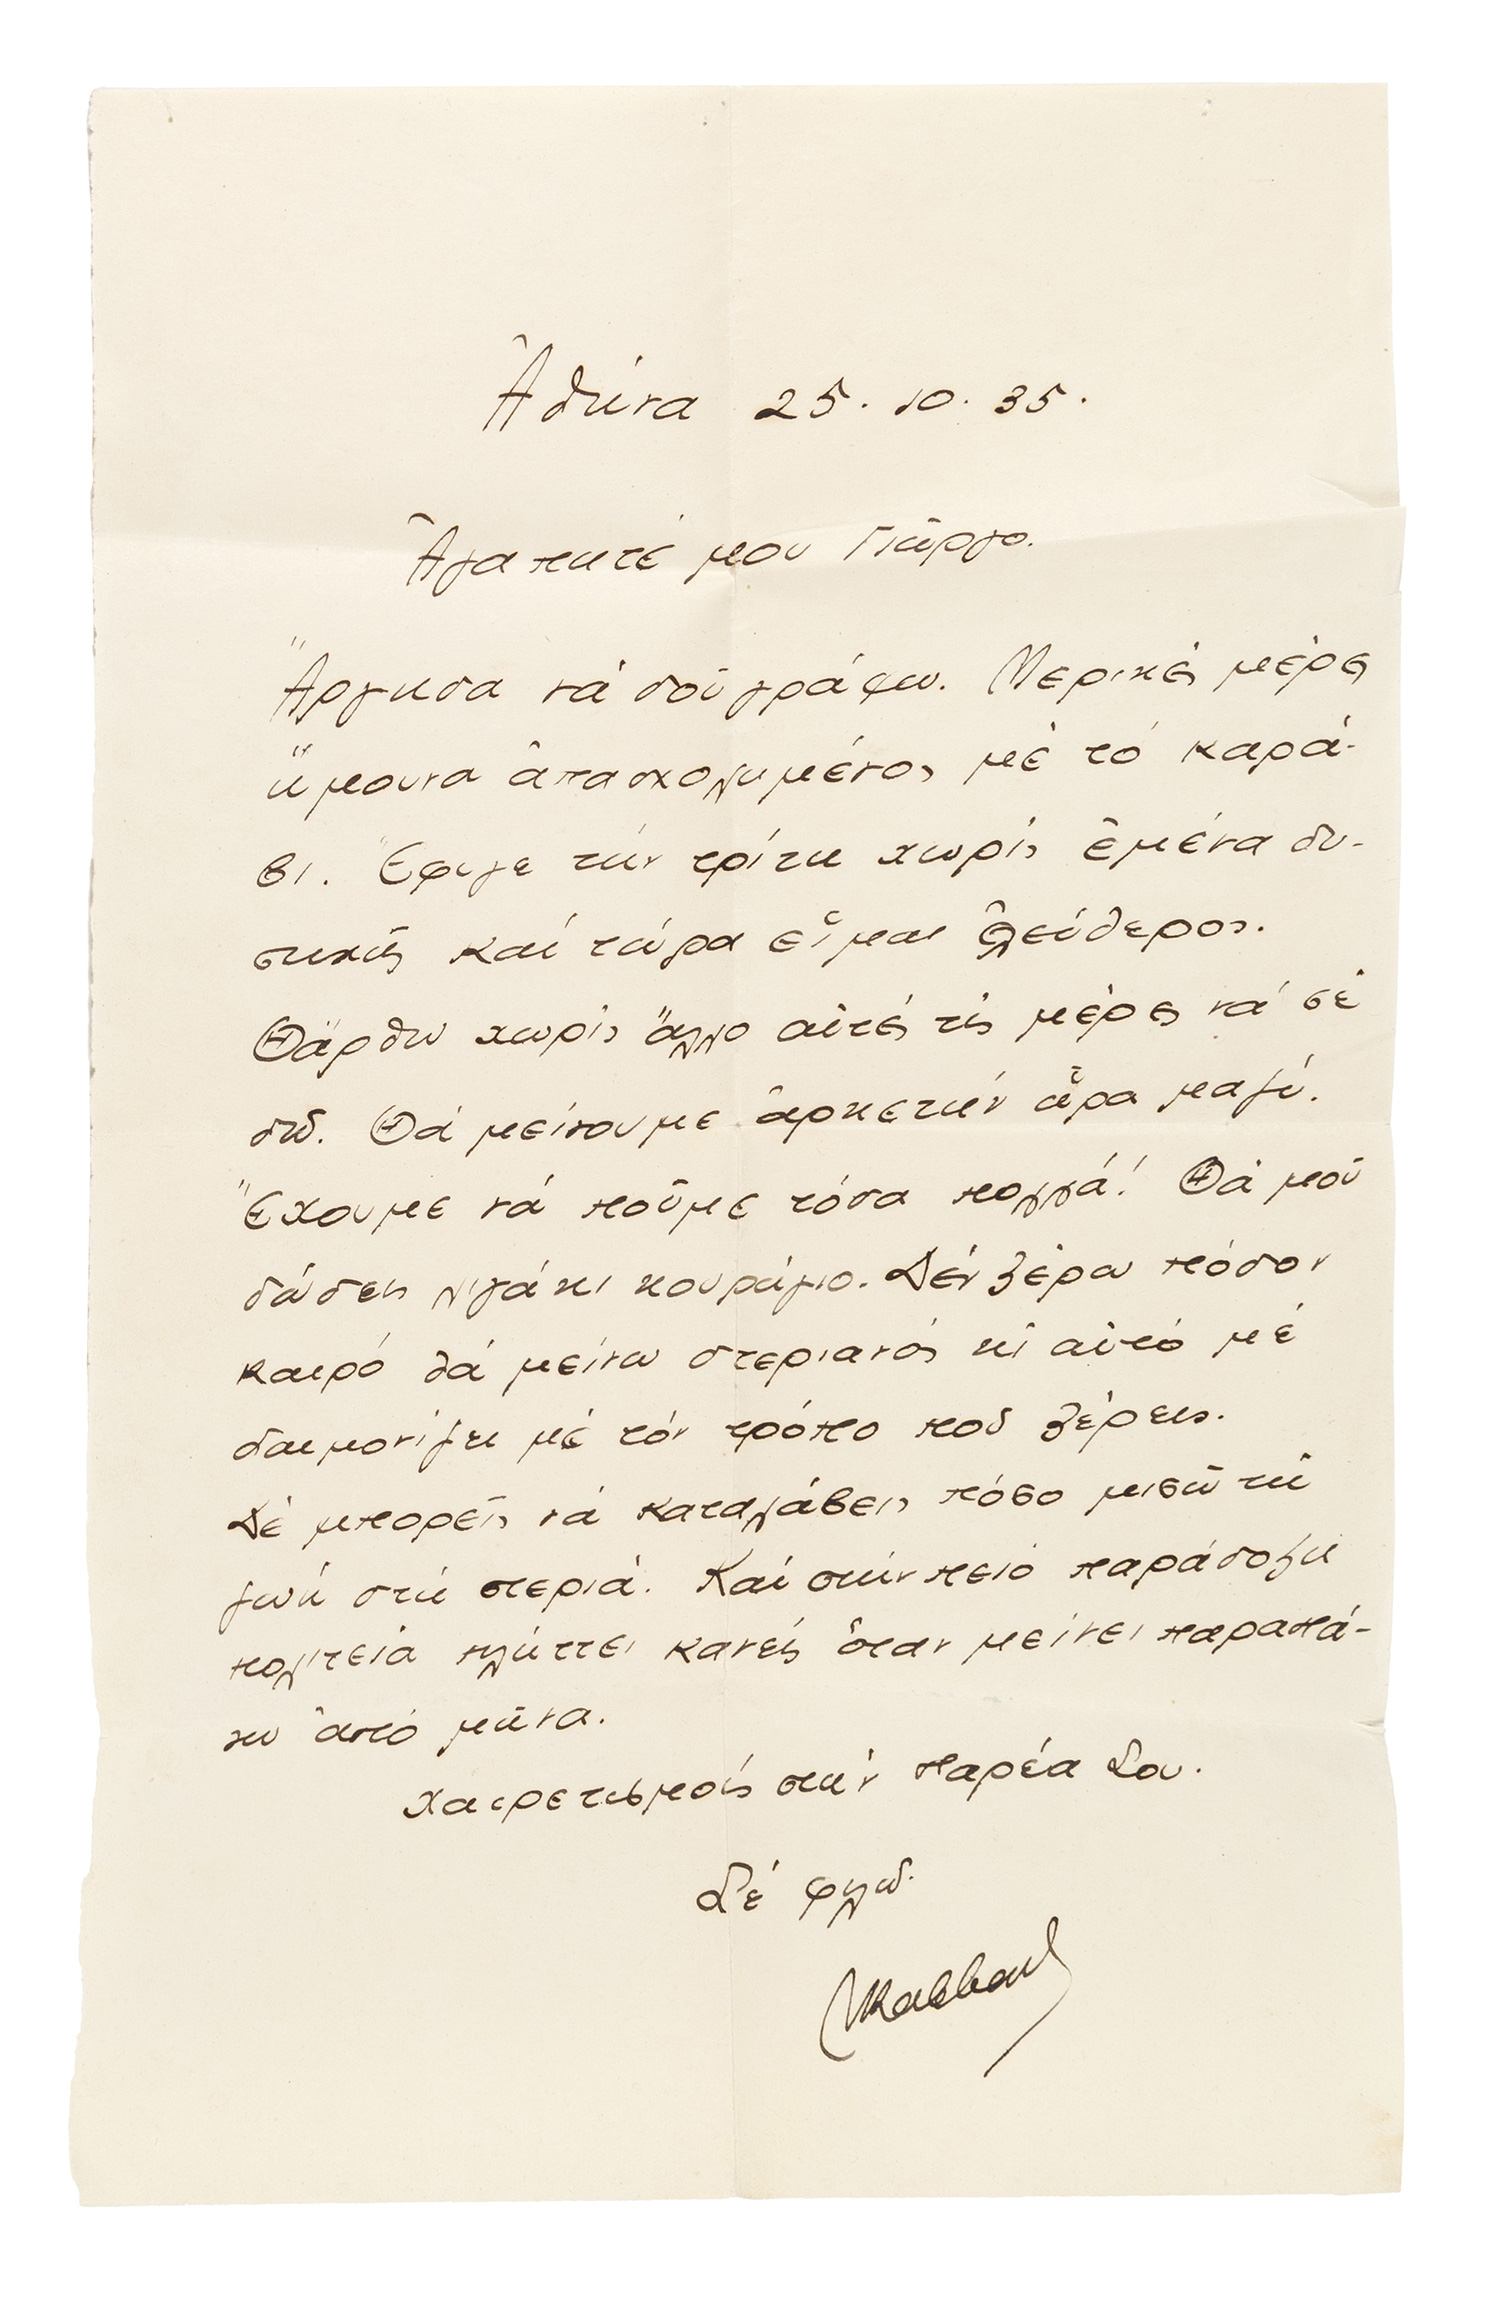 Ἀθήνα 25.10.35.
Ἀγαπητέ μου Γιῶργο.
Ἄργησα νά σοῦ γράψω. Μερικές μέρες
ἤμουνα ἀπασχολημένος μέ τό καρά-
βι. Ἔφυγε τήν τρίτη χωρίς ἐμένα δυ-
στυχῶς καί τώρα εἶμαι ἐλεύθερος.
Θἄρθω χωρίς ἄλλο αὐτές τίς μέρες νά σέ
δῶ. Θά μείνουμε ἀρκετήν ὥρα μαζύ.
Ἔχουμε νά ποῦμε τόσα πολλά! Θά μοῦ
δώσεις λιγάκι κουράγιο. Δέν ξέρω πόσον
καιρό θά μείνω στεριανός κι αὐτό μέ
δαιμονίζει μέ τόν τρόπο πού ξέρεις.
Δέ μπορεῖς νά καταλάβεις πόσο μισῶ τή
ζωή στή στεριά. Καί στήν πειό παράδοξη
πολιτεία πλήττει κανείς ὅταν μείνει παραπά-
νω ἀπό μῆνα.
Χαιρετισμούς στήν παρέα Σου.
Σέ φιλῶ.